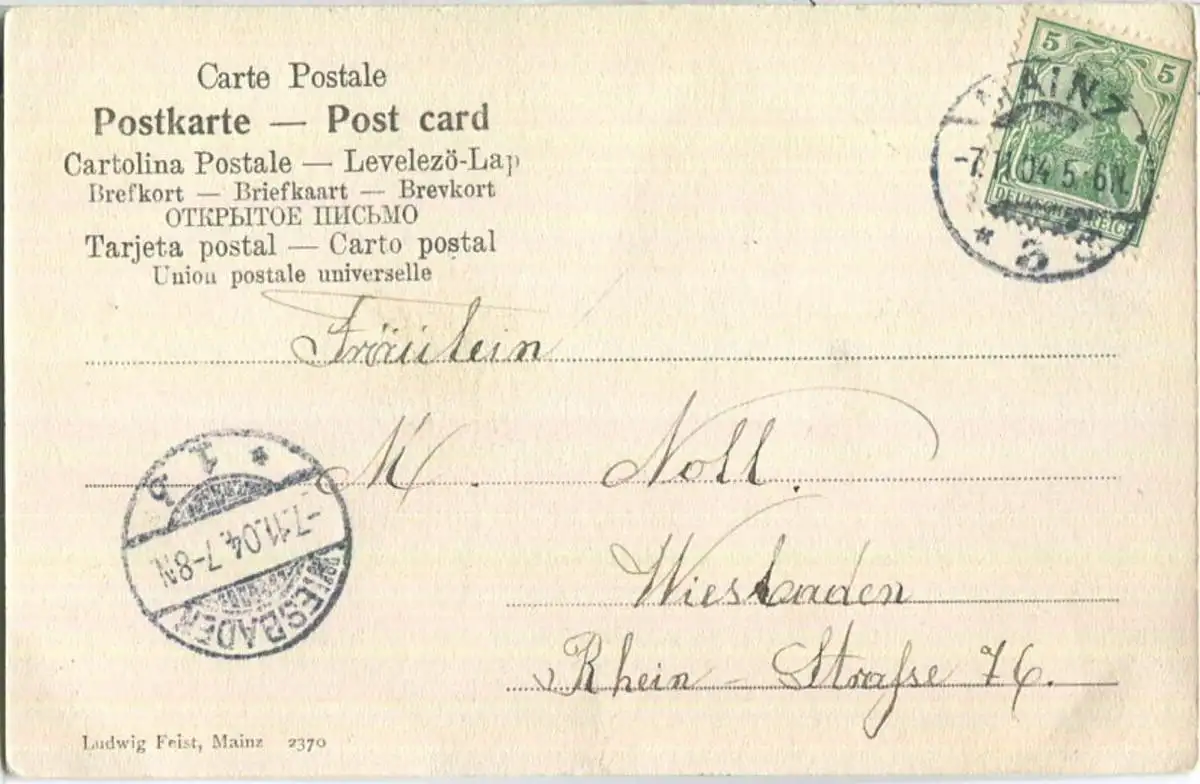 Carte Postale
Postkarte — Post card
Cartolina Postale — Levelező-Lap
Brefkort — Briefkaart — Brevkort
ОТКРЫТОЕ ПИСЬМО
Tarjeta postal — Carto postal
Union postale universelle
5 5
DEUTSCHES REICH
MAINZ
-7.11.04 5-6N.
* 5
Fräulein
M. Noll.
Wiesbaden
Rhein - Straſse 76.
* 1
-7.11.04.7-8N.
WIESBADEN
Ludwig Feist, Mainz 2370